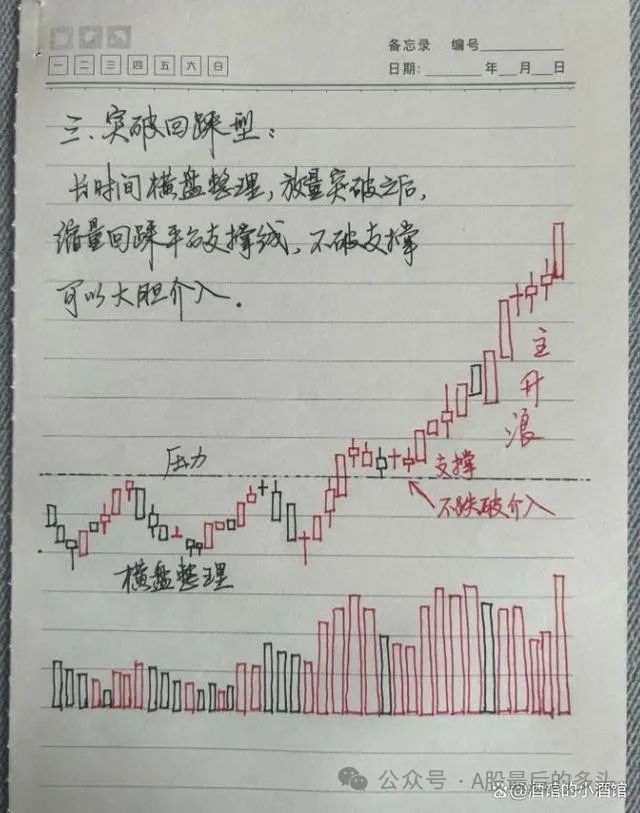 备忘录 编号
一 二 三 四 五 六 日
日期: 年 月 日
三、突破回踩型：
长时间横盘整理，放量突破之后，
缩量回踩平台支撑线，不破支撑
可以大胆介入．
主升浪
压力
支撑
不跌破介入
横盘整理
公众号 · A股最后的多头
@酒馆的小酒馆